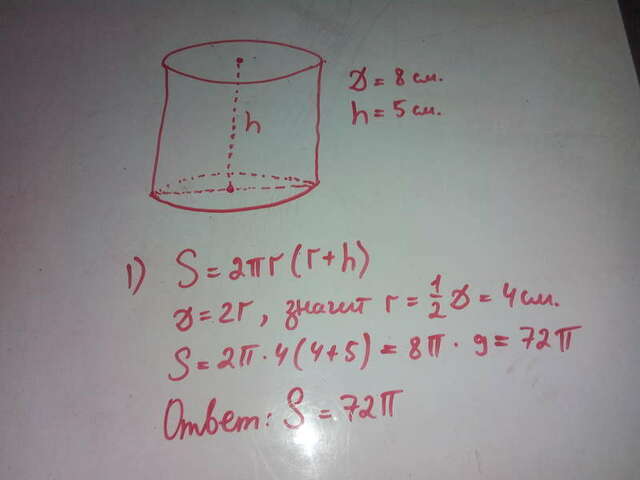 D = 8 см.
h = 5 см.
h
1) S = 2πr (r + h)
D = 2r, значит r = 1/2 D = 4 см.
S = 2π · 4 (4+5) = 8π · 9 = 72π
Ответ: S = 72π